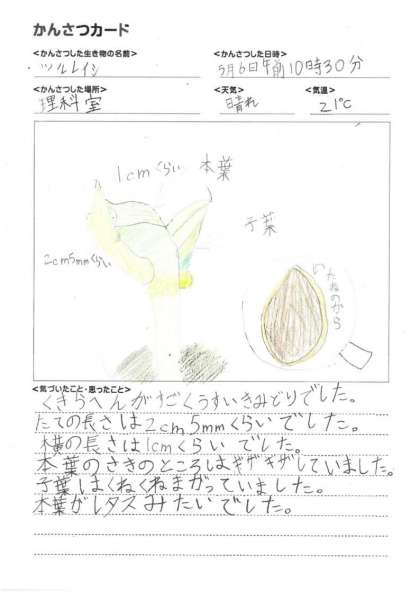 かんさつカード
<かんさつした生き物の名前>
ツルレイシ
<かんさつした日時>
5月6日午前10時30分
<かんさつした場所>
理科室
<天気>
晴れ
<気温>
21℃
1cmくらい
本葉
子葉
2cm5mmくらい
たねのから
<気づいたこと・思ったこと>
くきらへんがすごくうすいきみどりでした。
たての長さは2cm5mmくらいでした。
横の長さは1cmくらいでした。
本葉のさきのところはギザギザしていました。
子葉はくねくねまがっていました。
本葉がレタスみたいでした。